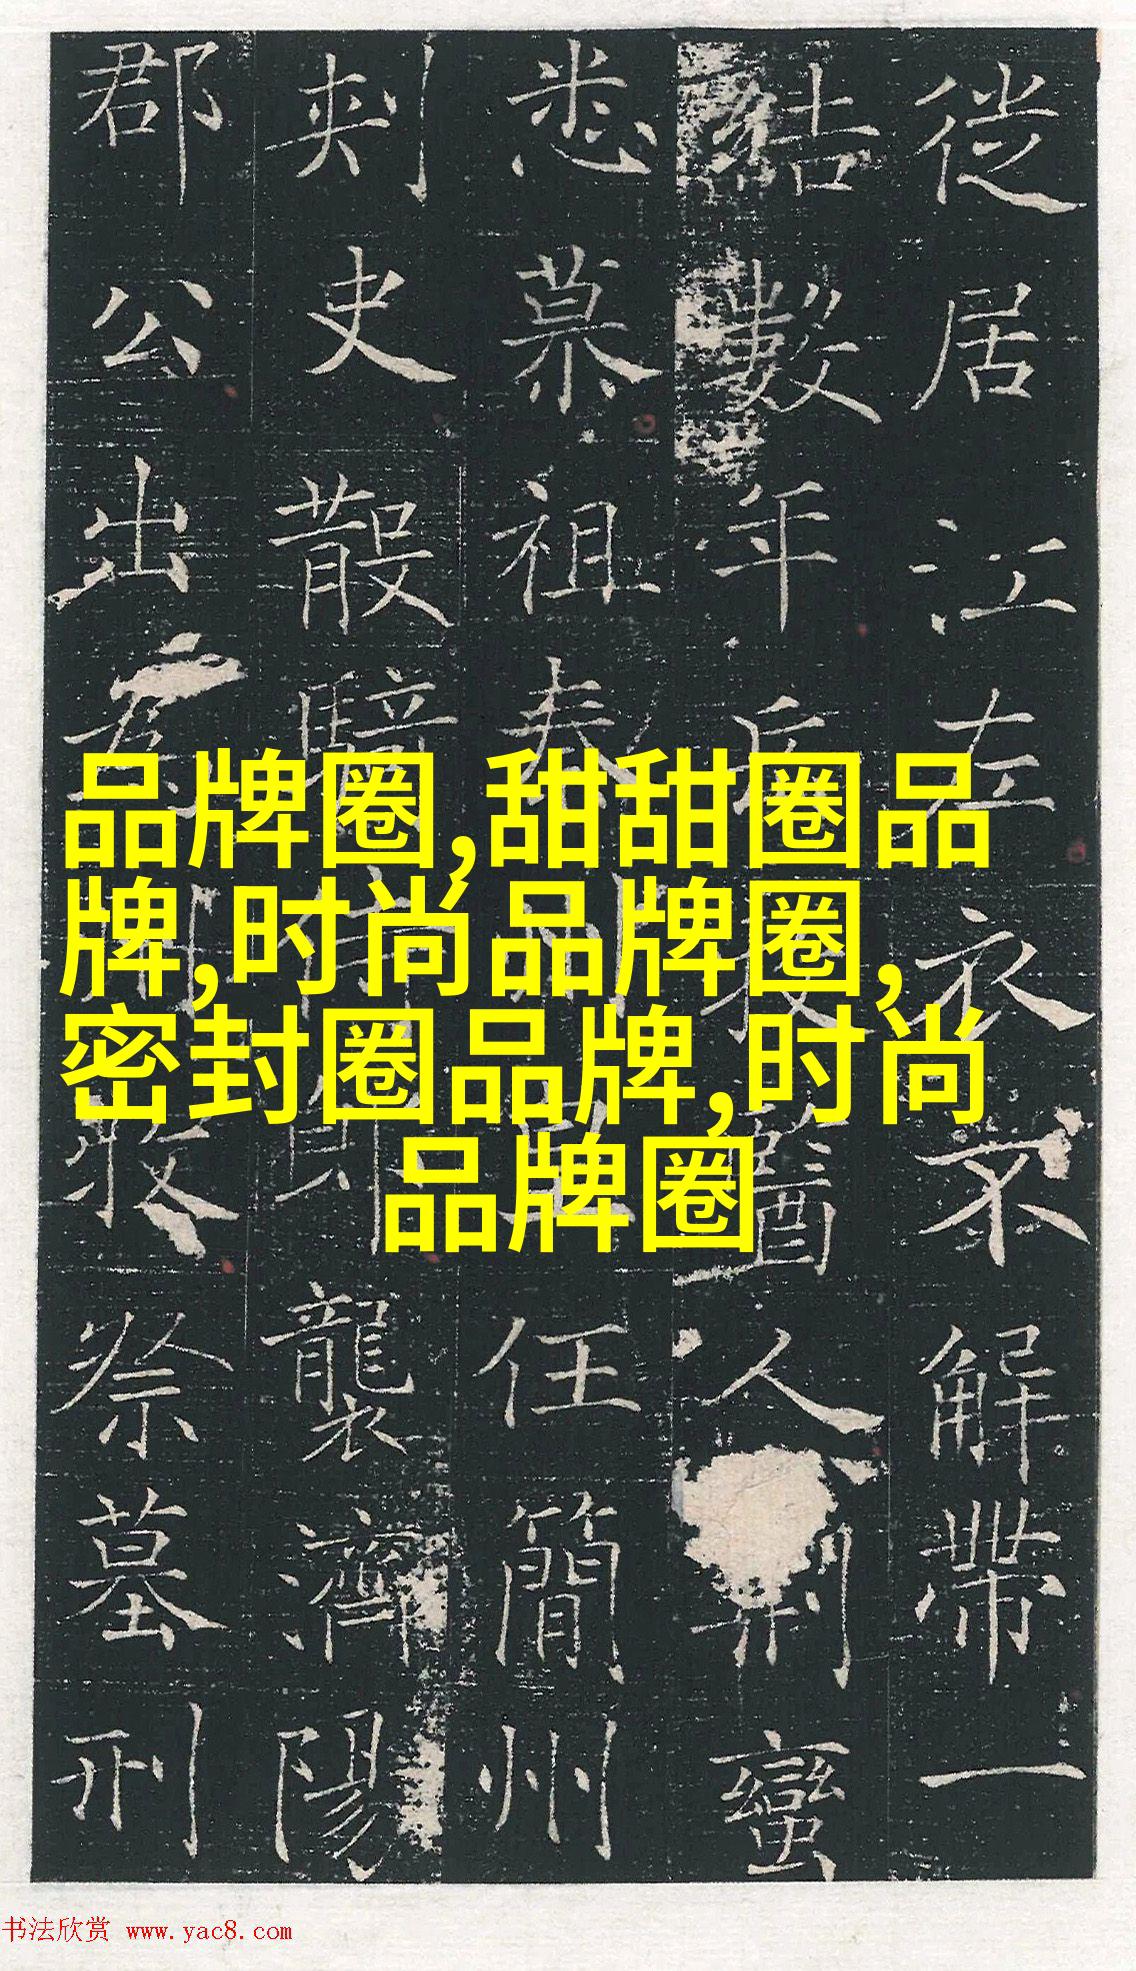 品牌圈,甜甜圈品
牌,时尚品牌圈,
密封圈品牌,时尚
品牌圈
徙居江左衣不解帶一
結數年人荆蠻
悉慕祖任簡州
刺史散騎侍襲濟陽
郡公出為牧祭墓刑
书法欣赏 www.yac8.com